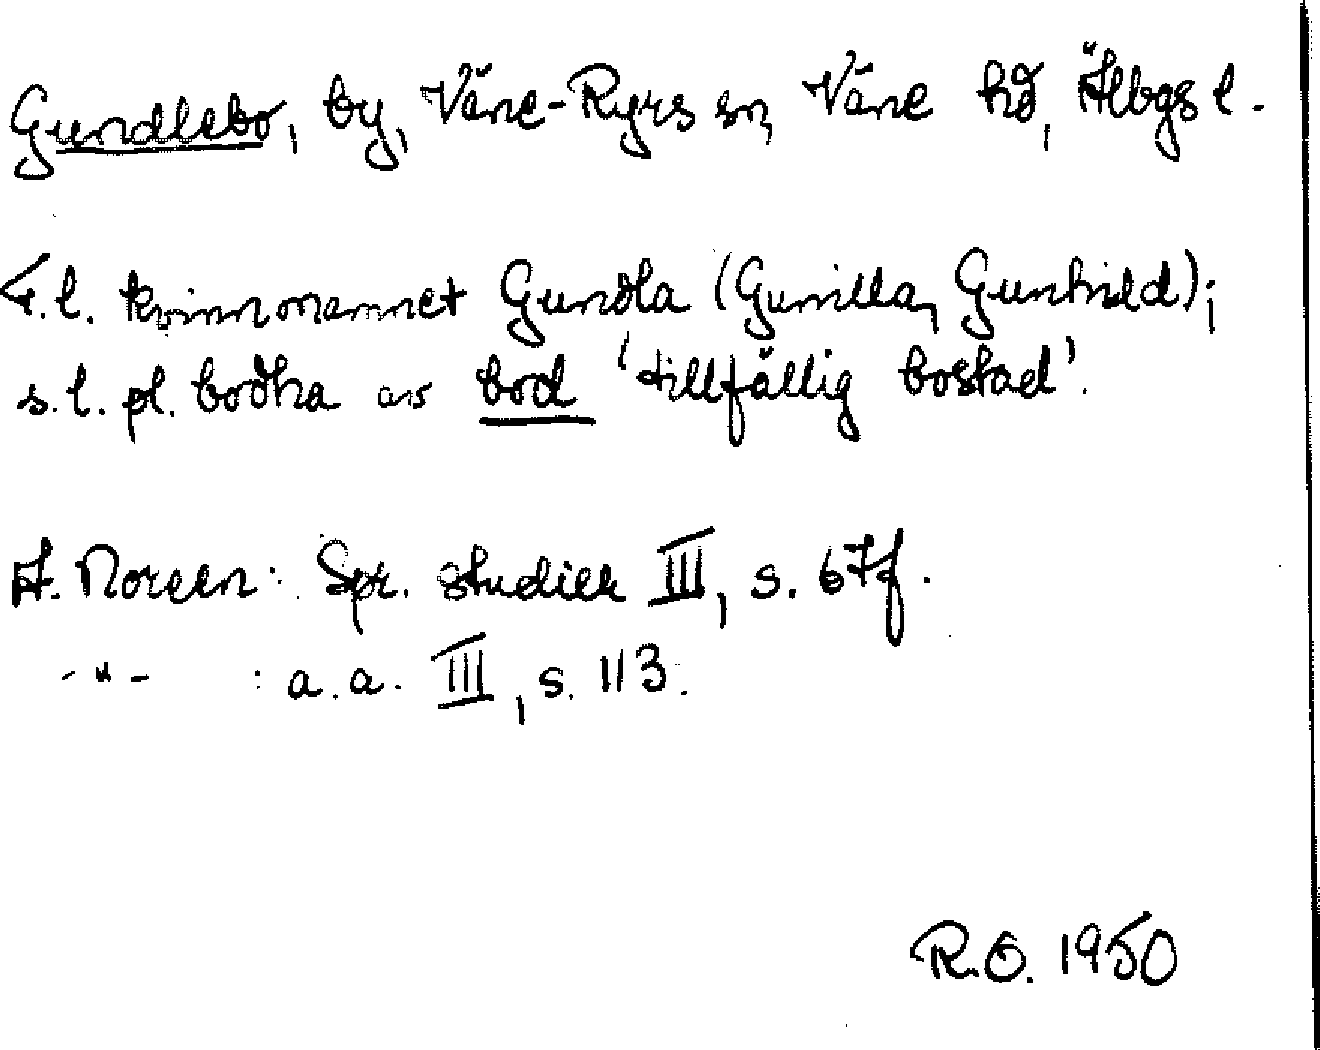 Gundlebo, by, Väne-Ryrs sn, Väne hd, Älbgs l.
F.l. kvinnonamnet Gundla (Gunilla, Gunhild);
s.l. pl. bodha av bod 'tillfällig bostad'.
A. Noreen: Spr. studier III, s. 67f.
-"- : a.a. III, s. 113.
R.O. 1950